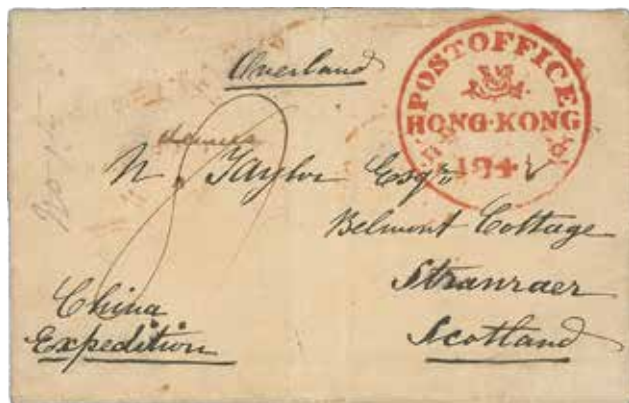 Overland
POST OFFICE
HONG·KONG
184
N. Taylor Esqr
Belmont Cottage
Stranraer
Scotland
China
Expedition